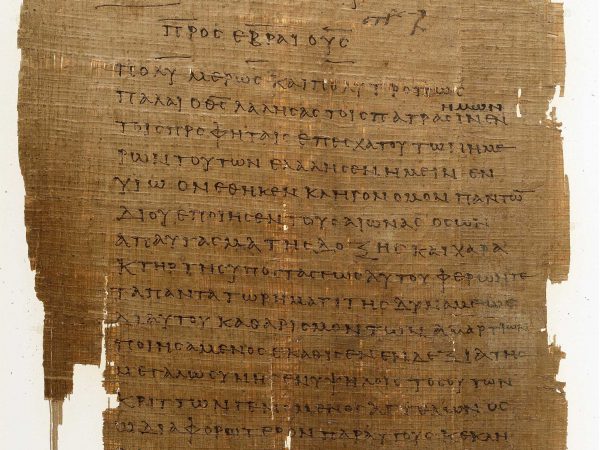 ΠΡΟϹ ΕΒΡΑΙΟΥϹ
ΠΟΛΥΜΕΡΩϹ ΚΑΙ ΠΟΛΥΤΡΟΠΩϹ
ΗΜΩΝ
ΠΑΛΑΙ Ο ΘϹ ΛΑΛΗϹΑϹ ΤΟΙϹ ΠΑΤΡΑϹΙΝ ΕΝ
ΤΟΙϹ ΠΡΟΦΗΤΑΙϹ ΕΠ ΕϹΧΑΤΟΥ ΤΩΝ ΗΜΕ
ΡΩΝ ΤΟΥΤΩΝ ΕΛΑΛΗϹΕΝ ΗΜΕΙΝ ΕΝ
ΥΙΩ ΟΝ ΕΘΗΚΕΝ ΚΛΗΡΟΝΟΜΟΝ ΠΑΝΤΩ̅
ΔΙ ΟΥ ΕΠΟΙΗϹΕΝ ΤΟΥϹ ΑΙΩΝΑϹ ΟϹ ΩΝ
ΑΠΑΥΓΑϹΜΑ ΤΗϹ ΔΟΞΗϹ ΚΑΙ ΧΑΡΑ
ΚΤΗΡ ΤΗϹ ΥΠΟϹΤΑϹΕΩϹ ΑΥΤΟΥ ΦΕΡΩΝ ΤΕ
ΤΑ ΠΑΝΤΑ ΤΩ ΡΗΜΑΤΙ ΤΗϹ ΔΥΝΑΜΕΩϹ
ΔΙ ΑΥΤΟΥ ΚΑΘΑΡΙϹΜΟΝ ΤΩΝ ΑΜΑΡΤΙΩΝ
ΠΟΙΗϹΑΜΕΝΟϹ ΕΚΑΘΙϹΕΝ ΕΝ ΔΕΞΙΑ ΤΗϹ
ΜΕΓΑΛΩϹΥΝΗϹ ΕΝ ΥΨΗΛΟΙϹ ΤΟϹΟΥΤΩΝ
ΚΡΙΤΤΩΝ ΓΕΝΟΜΕΝΟϹ ΑΓΓΕΛΩΝ ΟϹ
Ω ΔΙΑΦΟΡΩΤΕΡΟΝ ΠΑΡ ΑΥΤΟΥϹ ΚΕΚΛΗ